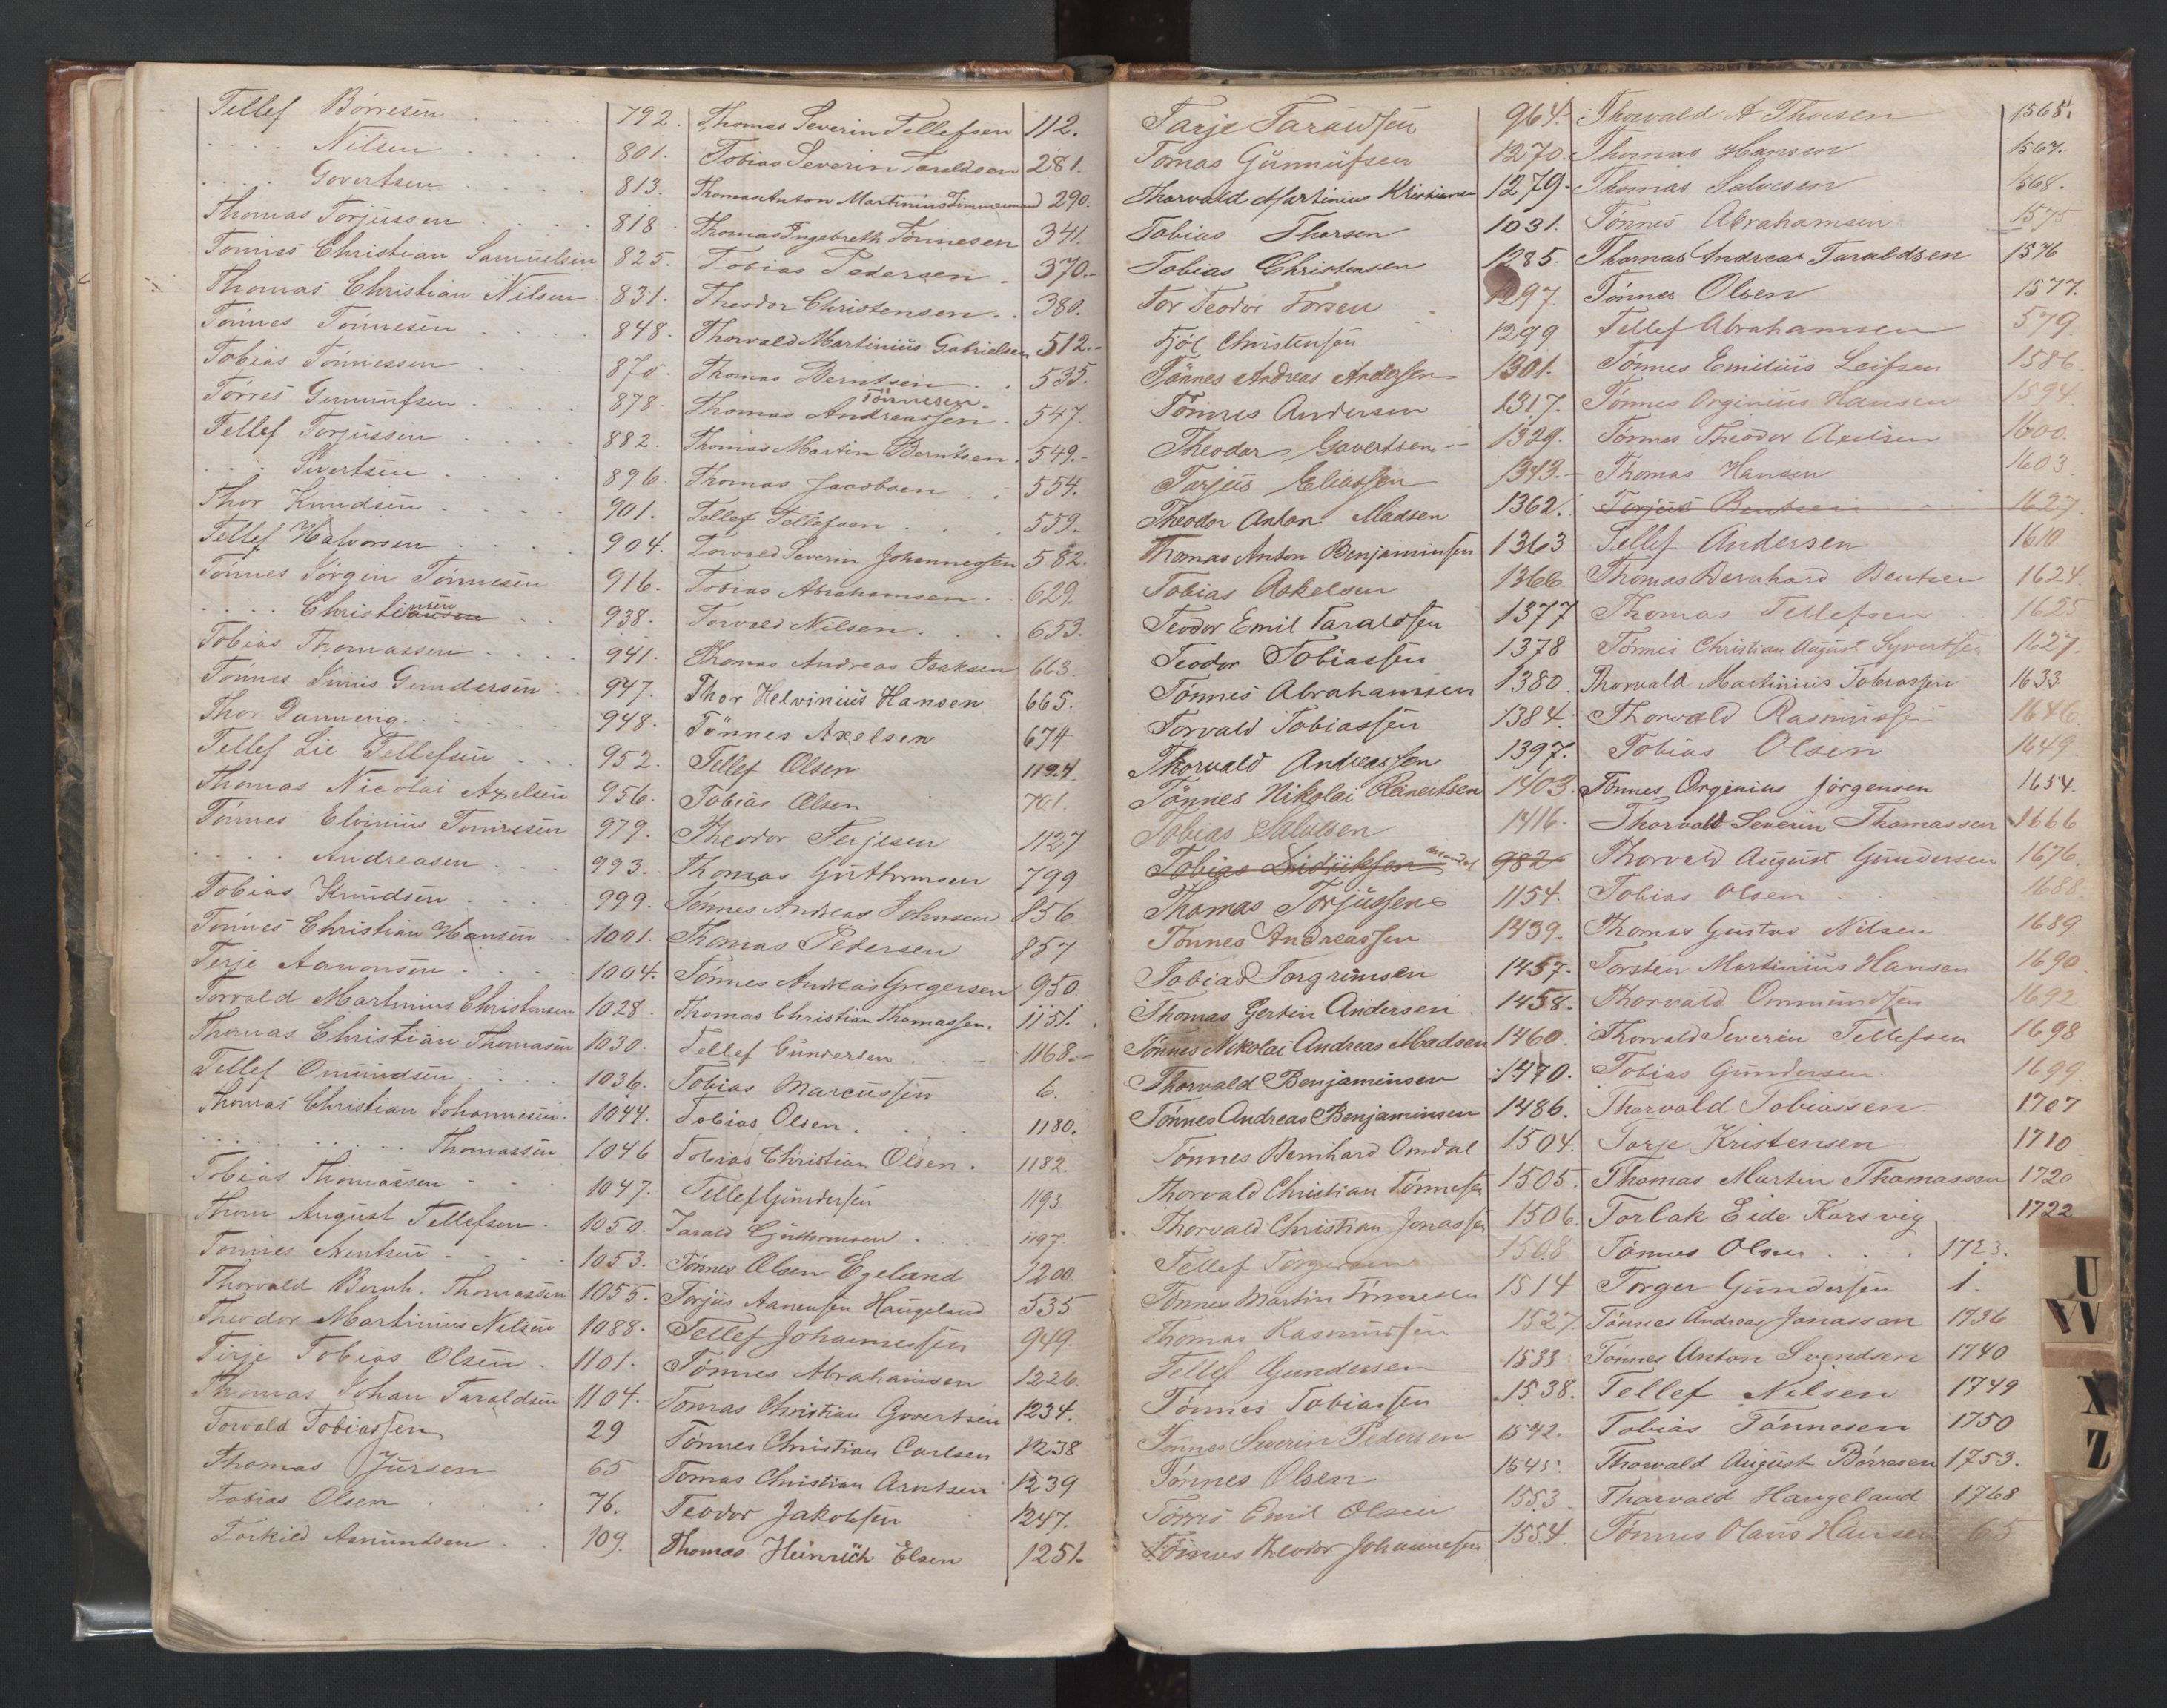 Tellef Börresen . . . . . 792.
. . . . Nilsen . . . . . 801.
. . . . Govertsen . . . . . 813.
Thomas Torjussen . . . . 818
Tönnes Christian Samuelsen 825.
Thomas Christian Nilsen . 831.
Tönnes Tönnesen . . . . 848.
Tobias Tönnessen . . . . 870.
Törres Gunnufsen . . . . 878.
Tellef Torjussen . . . . 882.
. . . Sivertsen . . . . 896.
Thor Knudsen . . . . 901.
Tellef Halvorsen . . . . 904.
Tönnes Jörgin Tönnesen 916.
. . . . Christiansen . . 938.
Tobias Thomassen . . . . 941.
Tönnes Gundersen . . 947.
Thor Dannevig . . . . . 948.
Tellef Lie Tellefsen . . . 952.
Thomas Nicolai Axelsen 956.
Tönnes Elvinius Tönnesen 979.
. . . . Andreasen . . . 993.
Tobias Knudsen . . . . 999.
Tönnes Christian Hansen . . 1001.
Terje Aanonsen . . . . 1004.
Torvald Martinius Christensen 1028.
Thomas Christian Thomasen 1030.
Tellef Omundsen . . . . 1036.
Thomas Christian Johannesen . 1044.
. . . . . . . . . Thomassen 1046
Tobias Thomassen . . . 1047.
Thom August Tellefsen . 1050.
Tönnes Arentsen . . . . 1053.
Thorvald Bernh. Thomassen 1055.
Theodor Martinius Nilsen 1088.
Terje Tobias Olsen . 1101.
Thomas Johan Taraldsen 1104.
Torvald Tobiassen 29
Thomas Jürsen 65
Tobias Olsen . . . 76.
Torkild Asmundsen . . 109.
Thomas Severin Tellefsen 112.
Tobias Severin Taraldsen 281.
Thomas Anton Martinius Zimmermand 290.
Thomas Ingebreth Tönnesen 341.
Tobias Pedersen . 370.-
Theodor Christensen . . 380.
Thorvald Martinius Gabrielsen 512.-
Thomas Berntsen . . 535.
Tönnesen.
Thomas Andreassen . 547.
Thomas Martin Berntsen . 549.-
Thomas Jacobsen . . 554.
Tellef Tellefsen . . . 559.
Torvald Severin Johannessen 582.
Tobias Abrahamsen . . 629.
Torvald Nilsen . . . . 653.
Thomas Andreas Isaksen 663.
Thor Helvinius Hansen 665.
Tönnes Axelsen 674
Tellef Olsen 1124.
Tobias Olsen 701.
Theodor Terjesen 1127
Thomas Guthormsen 799
Tönnes Andreas Johnsen 856
Thomas Pedersen 857
Tönnes Andreas Gregersen 950.
Thomas Christian Thomassen. 1151.
Tellef Gundersen . . . 1168.-
Tobias Marcussen 6.
Tobias Olsen . . . . 1180.
Tobias Christian Olsen . 1182.
Tellef Gundersen 1193.
Tarald Guthormsen . . . 1197.
Tönnes Olsen Egeland 1200.
Torjus Aanensen Haugeland 535
Tellef Johannessen 949.
Tönnes Abrahamsen 1226.
Tomas Christian Govertsen 1234.
Tönnes Christian Carlsen 1238
Tomas Christian Arntsen 1239
Teodor Jakobsen 1247.
Thomas Heinrich Elsen 1251.
Tarje Taraldsen 964.
Tomas Gunnufsen 1270.
Thorvald Martinius Kristiansen 1279.
Tobias Thorsen 1031.
Tobias Christensen 1285.
Tor Teodor Torsen 1297.
Tjöl Christensen 1299
Tönnes Andreas Andersen 1301.
Tönnes Andersen 1317.
Theodor Govertsen -- 1329.
Torjus Eliassen 1343.-
Theodor Anton Madsen 1362.
Thomas Anton Benjaminsen 1363
Tobias Askelsen 1366.
Teodor Emil Taraldsen 1377
Teodor Tobiassen 1378
Tönnes Abrahamsen 1380
Torvald Tobiassen 1384.
Thorvald Andreassen 1397.
Tönnes Nikolai Reinertsen 1403.
Tobias Salvesen 1416.
Tobias Didriksen Mandal 982
Thomas Torjussen 1154.
Tönnes Andreassen 1439.
Tobias Torgrimsen 1457.
Thomas Gertin Andersen 1458.
Tönnes Nikolai Andreas Madsen 1460.
Thorvald Benjaminsen 1470.
Tönnes Andreas Benjaminsen 1486.
Tönnes Bernhard Omdal 1504.
Thorvald Christian Tönnesen 1505.
Thorvald Christian Jonassen 1506.
Tellef Torgersen 1508
Tönnes Martin Tönnesen 1514
Thomas Rasmussen 1527.
Tellef Gundersen 1533
Tönnes Tobiassen 1538.
Tönnes Severin Pedersen 1542.
Tönnes Olsen 1545.
Törris Emil Olsen 1553.
Tönnes Theodor Johannesen 1554.
Thorvald A Thorsen 1565.
Thomas Hansen 1567.
Thomas Salvesen 1568.
Tönnes Abrahamsen 1575
Thomas Andreas Taraldsen 1576
Tönnes Olsen 1577.
Tellef Abrahamsen 579.
Tönnes Emilius Leifsen 1586
Tönnes Orginius Hansen 1594.
Tönnes Theodor Axelsen 1600.
Thomas Hansen 1603.
Torjus Bentsen 1627.
Tellef Andersen 1610
Thomas Bernhard Bentsen 1624.
Thomas Tellefsen 1625
Tönnes Christian August Syvertsen 1627.
Thorvald Martinius Tobiassen 1633.
Thorvald Rasmussen 1646.
Tobias Olsen 1649
Tönnes Orginius Jörgensen 1654.
Thorvald Severin Thomassen 1666
Thorvald August Gundersen 1676.
Tobias Olsen . . 1688.
Thomas Gustav Nilsen 1689
Torsten Martinius Hansen 1690
Thorvald Ommundsen 1692
Thorvald Severin Tellefsen 1698
Tobias Gundersen 1699
Thorvald Tobiassen. 1707
Tarje Kristensen 1710
Thomas Martin Thomassen 1720
Torlak Eide Korsvig 1722
Tönnes Olsen . . . 1723.
Torger Gundersen 1.
Tönnes Andreas Jonassen 1736
Tönnes Anton Svendsen 1740
Tellef Nilsen 1749
Tobias Tönnesen 1750
Thorvald August Börresen 1753.
Thorvald Haugeland 1768
Tönnes Olaus Hansen 65
U
VW
X
Z